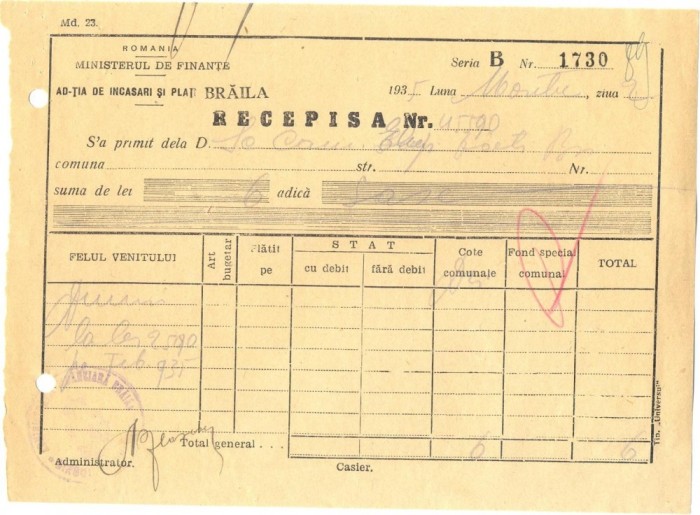 Md. 23.
ROMANIA
MINISTERUL DE FINANȚE
AD-ȚIA DE INCASARI ȘI PLAȚI BRĂILA
Seria B Nr. 1730
1935 Luna ziua 2
RECEPISA Nr. 4590
S'a primit dela D.
comuna str. Nr.
suma de lei 6 adică sase
FELUL VENITULUI
Art bugetar
Plătit pe
STAT
cu debit
fără debit
Cote comunale
Fond special comunal
TOTAL
la lei 2590
pe Feb 935
Total general . . . 6 6
Administrator.
Casier.
Tip. „Universul"